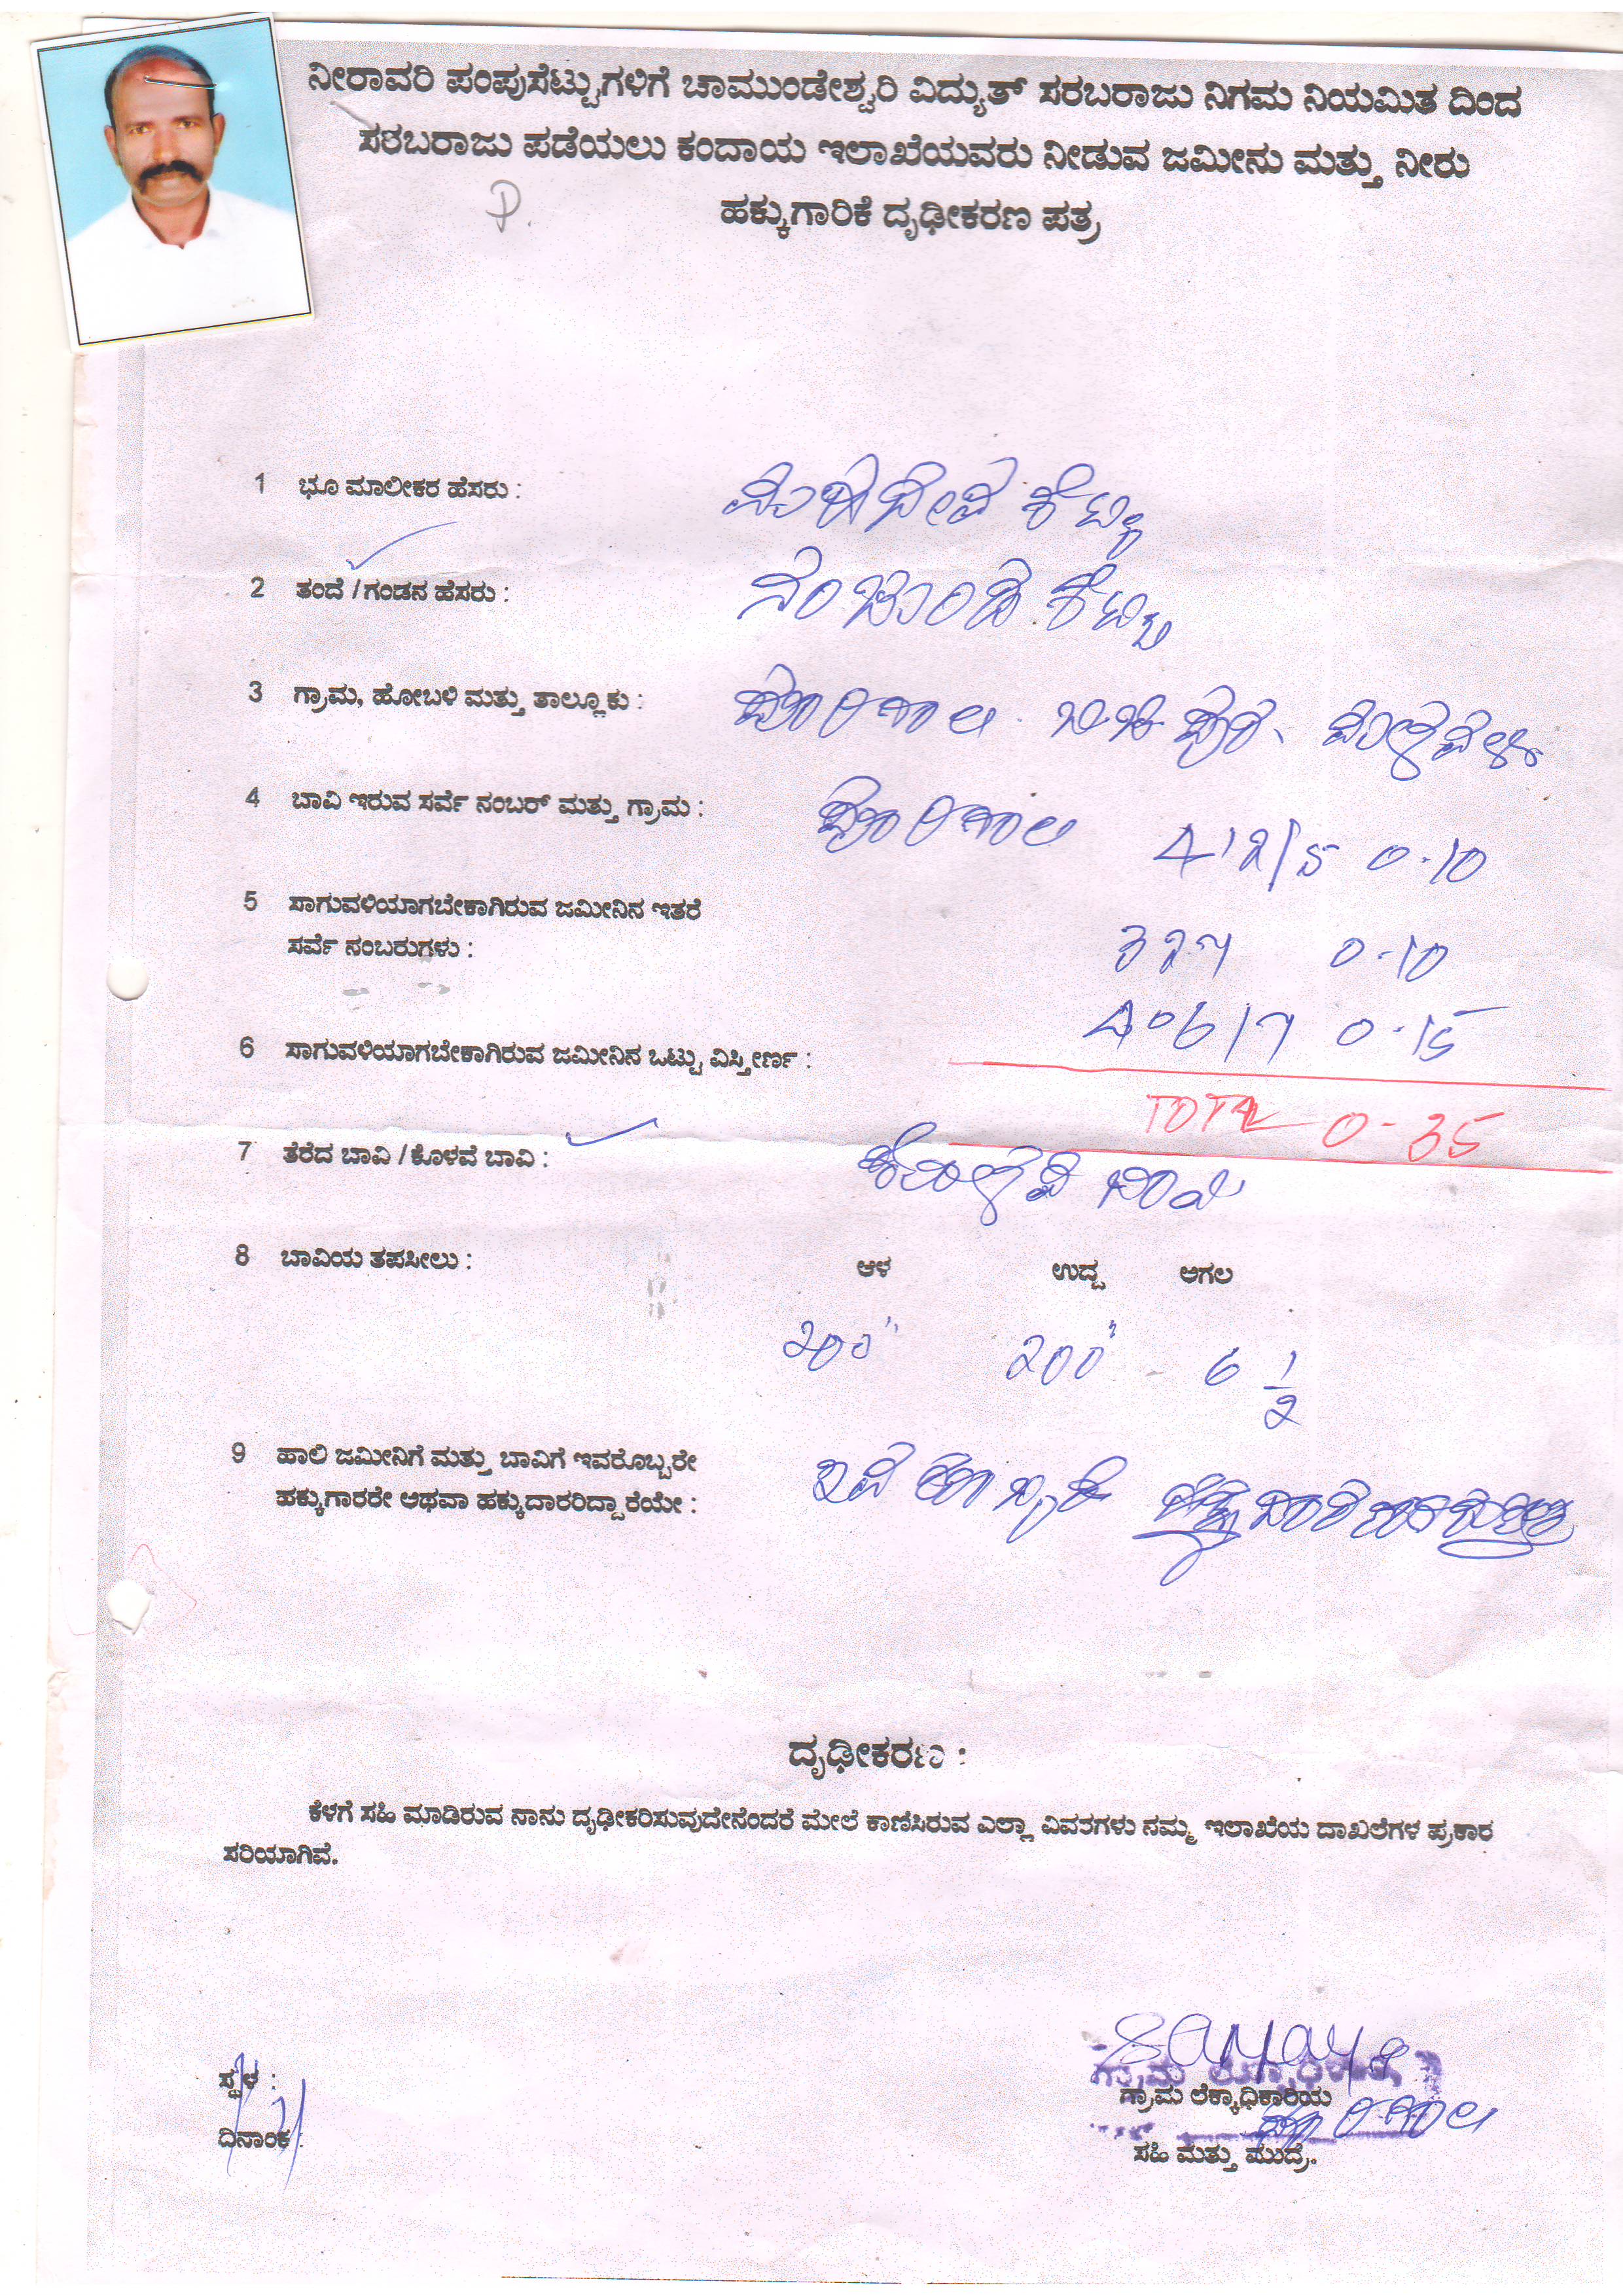 ನೀರಾವರಿ ಪಂಪುಸೆಟ್ಟುಗಳಿಗೆ ಚಾಮುಂಡೇಶ್ವರಿ ವಿದ್ಯುತ್ ಸರಬರಾಜು ನಿಗಮ ನಿಯಮಿತ ದಿಂದ
ಸರಬರಾಜು ಪಡೆಯಲು ಕಂದಾಯ ಇಲಾಖೆಯವರು ನೀಡುವ ಜಮೀನು ಮತ್ತು ನೀರು
ಹಕ್ಕುಗಾರಿಕೆ ದೃಢೀಕರಣ ಪತ್ರ
P.
1 ಭೂ ಮಾಲೀಕರ ಹೆಸರು : ಮಹದೇವ ಶೆಟ್ಟಿ
2 ತಂದೆ / ಗಂಡನ ಹೆಸರು : ನಂಜುಂಡ ಶೆಟ್ಟಿ
3 ಗ್ರಾಮ, ಹೋಬಳಿ ಮತ್ತು ತಾಲ್ಲೂಕು :
4 ಬಾವಿ ಇರುವ ಸರ್ವೆ ನಂಬರ್ ಮತ್ತು ಗ್ರಾಮ : 412/5 0-10
5 ಸಾಗುವಳಿಯಾಗಬೇಕಾಗಿರುವ ಜಮೀನಿನ ಇತರೆ
ಸರ್ವೆ ನಂಬರುಗಳು : 327 0-10
406/7 0-15
6 ಸಾಗುವಳಿಯಾಗಬೇಕಾಗಿರುವ ಜಮೀನಿನ ಒಟ್ಟು ವಿಸ್ತೀರ್ಣ :
TOTAL 0-35
7 ತೆರೆದ ಬಾವಿ / ಕೊಳವೆ ಬಾವಿ : ಕೊಳವೆ ಬಾವಿ
8 ಬಾವಿಯ ತಪಸೀಲು : ಆಳ ಉದ್ದ ಅಗಲ
200" 200' 6 1/2
9 ಹಾಲಿ ಜಮೀನಿಗೆ ಮತ್ತು ಬಾವಿಗೆ ಇವರೊಬ್ಬರೇ
ಹಕ್ಕುಗಾರರೇ ಅಥವಾ ಹಕ್ಕುದಾರರಿದ್ದಾರೆಯೇ : ಇವರೊಬ್ಬರೇ
ದೃಢೀಕರಣ :
ಕೆಳಗೆ ಸಹಿ ಮಾಡಿರುವ ನಾನು ದೃಢೀಕರಿಸುವುದೇನೆಂದರೆ ಮೇಲೆ ಕಾಣಿಸಿರುವ ಎಲ್ಲಾ ವಿವರಗಳು ನಮ್ಮ ಇಲಾಖೆಯ ದಾಖಲೆಗಳ ಪ್ರಕಾರ
ಸರಿಯಾಗಿವೆ.
ಗ್ರಾಮ ಲೆಕ್ಕಾಧಿಕಾರಿ
ಸ್ಥಳ : ಗ್ರಾಮ ಲೆಕ್ಕಾಧಿಕಾರಿಯ
ದಿನಾಂಕ : ಸಹಿ ಮತ್ತು ಮುದ್ರೆ.